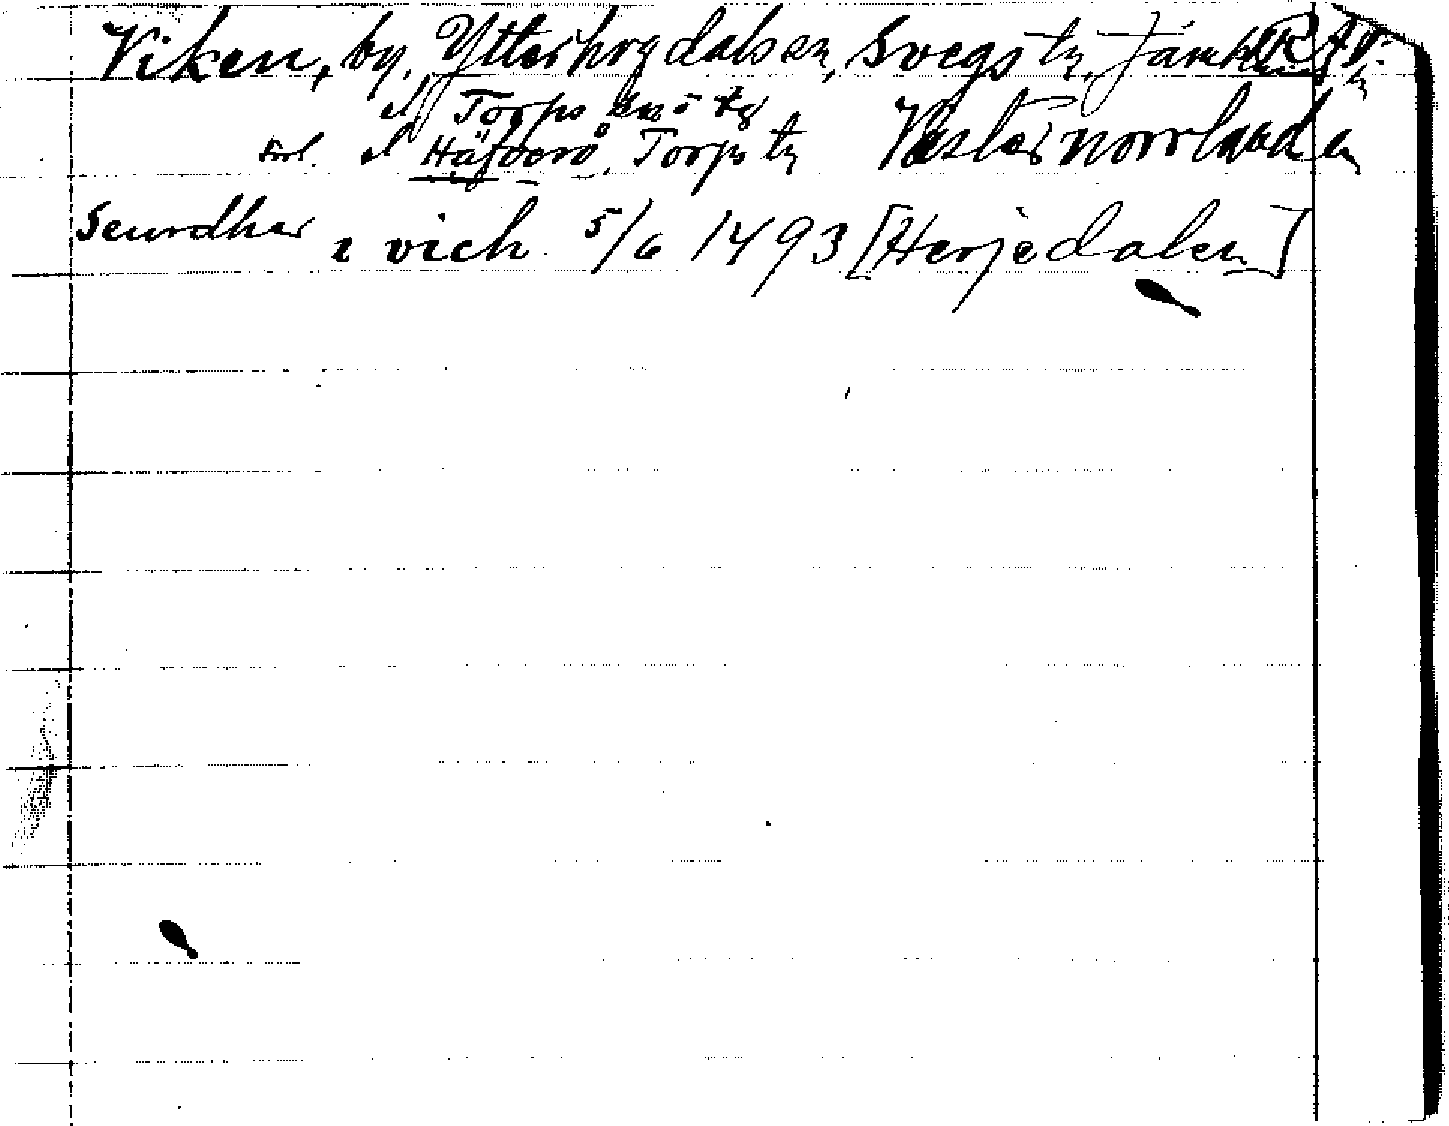 Viken, by, Ytterhogdals sn, Svegs tg, Jämtl. RAp.
el Torps sn o tg
el Häfverö, Torps tg Västernorrland ln
Seurdher i vich 5/6 1493 [Herjedalen]